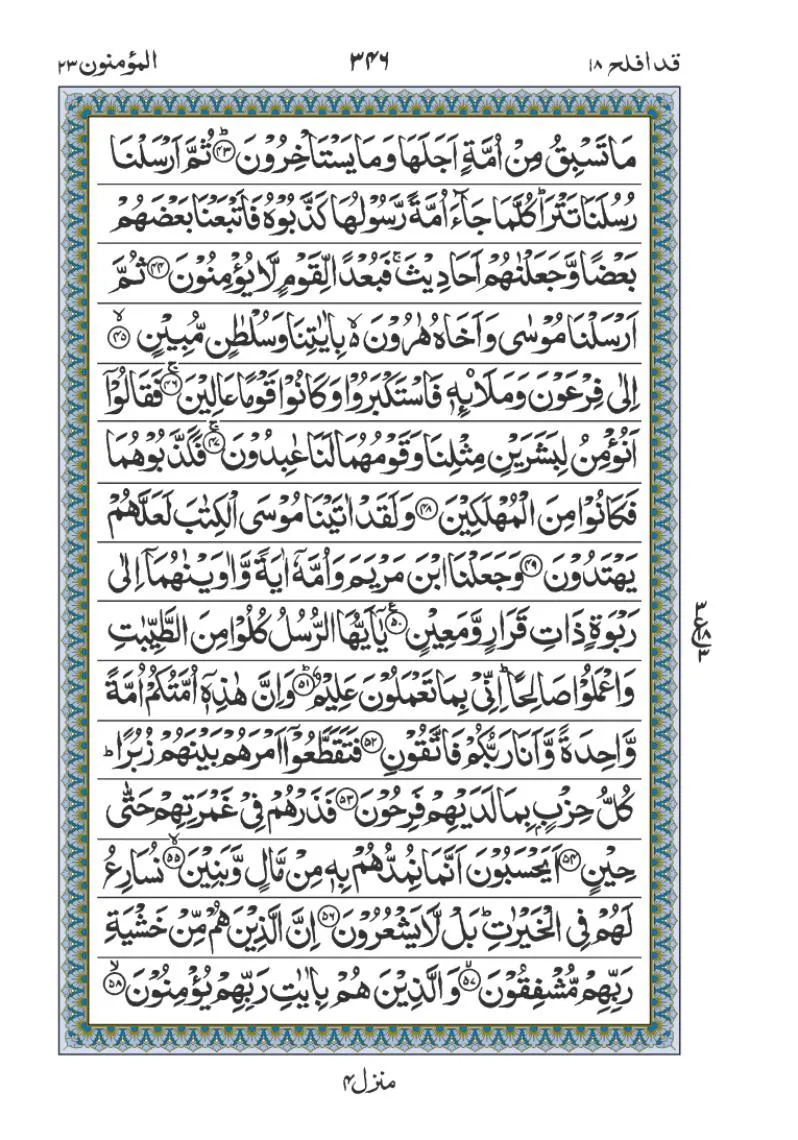 قد افلح ۱۸ ۳۴۶ المؤمنون ۲۳
مَا تَسْبِقُ مِنْ اُمَّةٍ اَجَلَهَا وَمَا يَسْتَاْخِرُوْنَ ؕ‏﴿۴۳﴾ ثُمَّ اَرْسَلْنَا
رُسُلَنَا تَتْرَا ؕ كُلَّمَا جَآءَ اُمَّةً رَّسُوْلُهَا كَذَّبُوْهُ فَاَتْبَعْنَا بَعْضَهُمْ
بَعْضًا وَّجَعَلْنٰهُمْ اَحَادِيْثَ ۚ فَبُعْدًا لِّقَوْمٍ لَّا يُؤْمِنُوْنَ ﴿۴۴﴾ ثُمَّ
اَرْسَلْنَا مُوْسٰى وَاَخَاهُ هٰرُوْنَ ۙ۬ بِاٰيٰتِنَا وَسُلْطٰنٍ مُّبِيْنٍ ۙ﴿۴۵﴾
اِلٰى فِرْعَوْنَ وَمَلَا۟ئِهٖ فَاسْتَكْبَرُوْا وَكَانُوْا قَوْمًا عَالِيْنَ ۚ﴿۴۶﴾ فَقَالُوْۤا
اَنُؤْمِنُ لِبَشَرَيْنِ مِثْلِنَا وَقَوْمُهُمَا لَنَا عٰبِدُوْنَ ۚ﴿۴۷﴾ فَكَذَّبُوْهُمَا
فَكَانُوْا مِنَ الْمُهْلَكِيْنَ ﴿۴۸﴾ وَلَقَدْ اٰتَيْنَا مُوْسَى الْكِتٰبَ لَعَلَّهُمْ
يَهْتَدُوْنَ ﴿۴۹﴾ وَجَعَلْنَا ابْنَ مَرْيَمَ وَاُمَّهٗۤ اٰيَةً وَّاٰوَيْنٰهُمَاۤ اِلٰى
رَبْوَةٍ ذَاتِ قَرَارٍ وَّمَعِيْنٍ ﴿۵۰﴾ يٰۤاَيُّهَا الرُّسُلُ كُلُوْا مِنَ الطَّيِّبٰتِ
وَاعْمَلُوْا صَالِحًا ؕ اِنِّىْ بِمَا تَعْمَلُوْنَ عَلِيْمٌ ؕ﴿۵۱﴾ وَاِنَّ هٰذِهٖۤ اُمَّتُكُمْ اُمَّةً
وَّاحِدَةً وَّاَنَا رَبُّكُمْ فَاتَّقُوْنِ ﴿۵۲﴾ فَتَقَطَّعُوْۤا اَمْرَهُمْ بَيْنَهُمْ زُبُرًا ؕ
كُلُّ حِزْبٍۭ بِمَا لَدَيْهِمْ فَرِحُوْنَ ﴿۵۳﴾ فَذَرْهُمْ فِىْ غَمْرَتِهِمْ حَتّٰى
حِيْنٍ ﴿۵۴﴾ اَيَحْسَبُوْنَ اَنَّمَا نُمِدُّهُمْ بِهٖ مِنْ مَّالٍ وَّبَنِيْنَ ۙ﴿۵۵﴾ نُسَارِعُ
لَهُمْ فِى الْخَيْرٰتِ ؕ بَلْ لَّا يَشْعُرُوْنَ ﴿۵۶﴾ اِنَّ الَّذِيْنَ هُمْ مِّنْ خَشْيَةِ
رَبِّهِمْ مُّشْفِقُوْنَ ۙ﴿۵۷﴾ وَالَّذِيْنَ هُمْ بِاٰيٰتِ رَبِّهِمْ يُؤْمِنُوْنَ ۙ﴿۵۸﴾
۳
ع۱۸
۳
منزل ۴